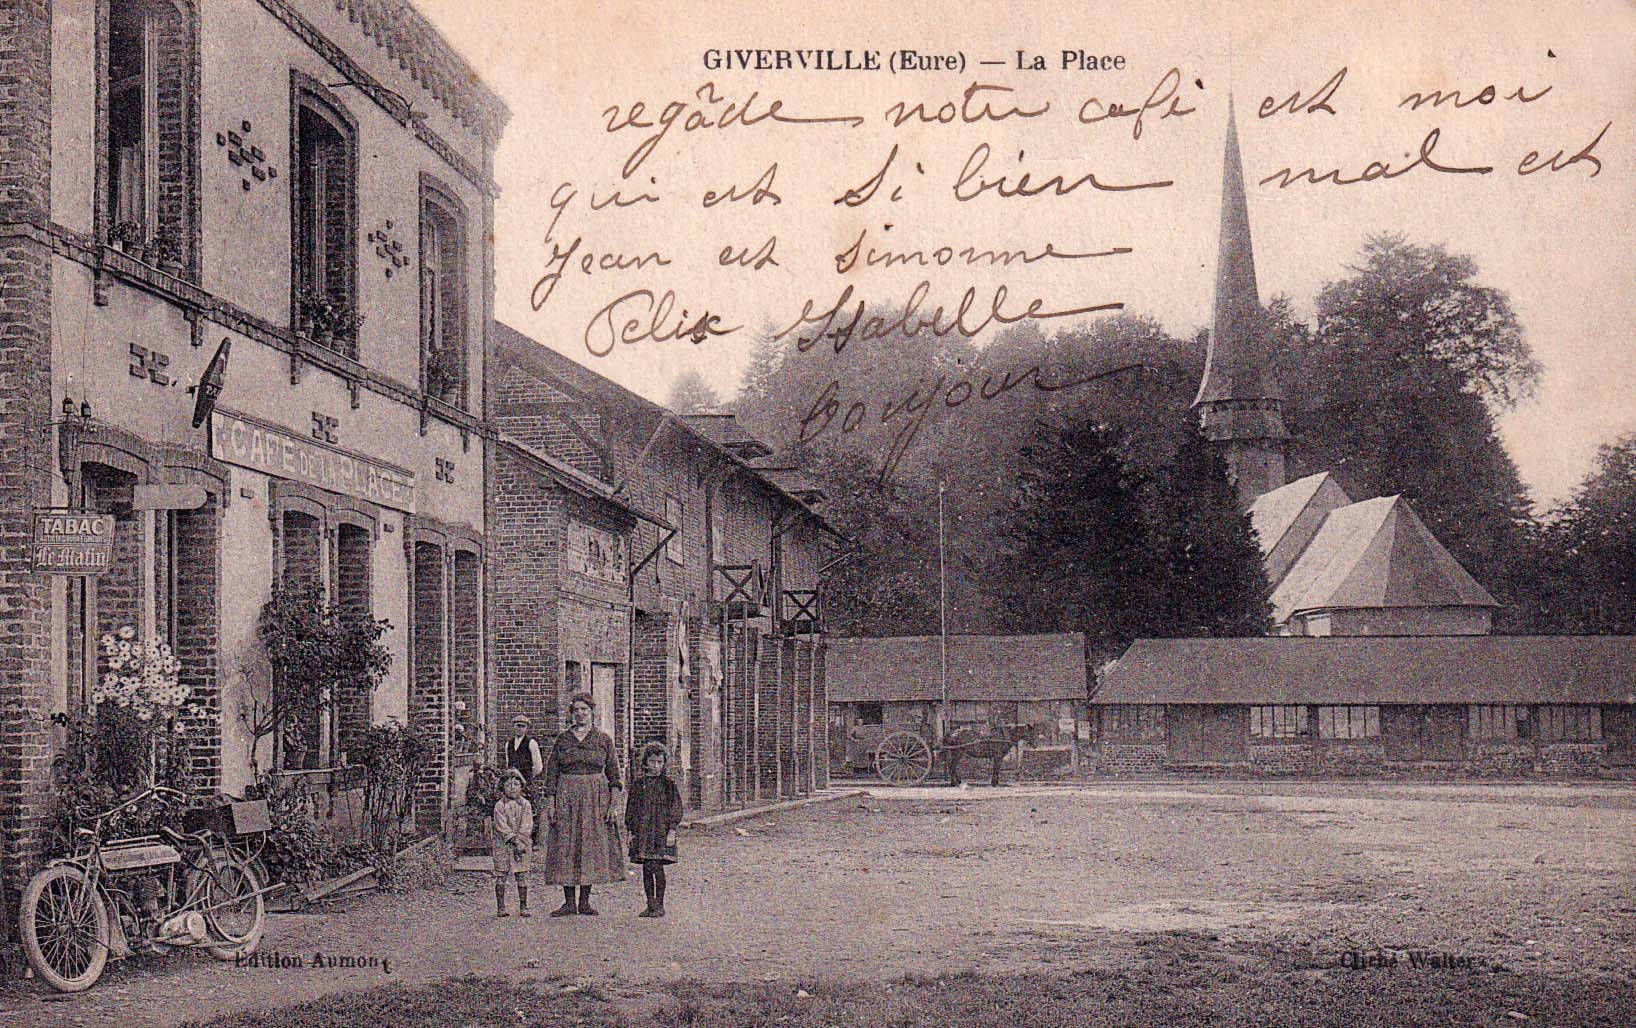 GIVERVILLE (Eure) — La Place
regâde notre café est moi
qui est si bien mal est
Jean est Simonne
Felix Isabelle
bonjour
CAFÉ DE LA PLACE
TABAC
Le Matin
Edition Aumont
Cliché Walter